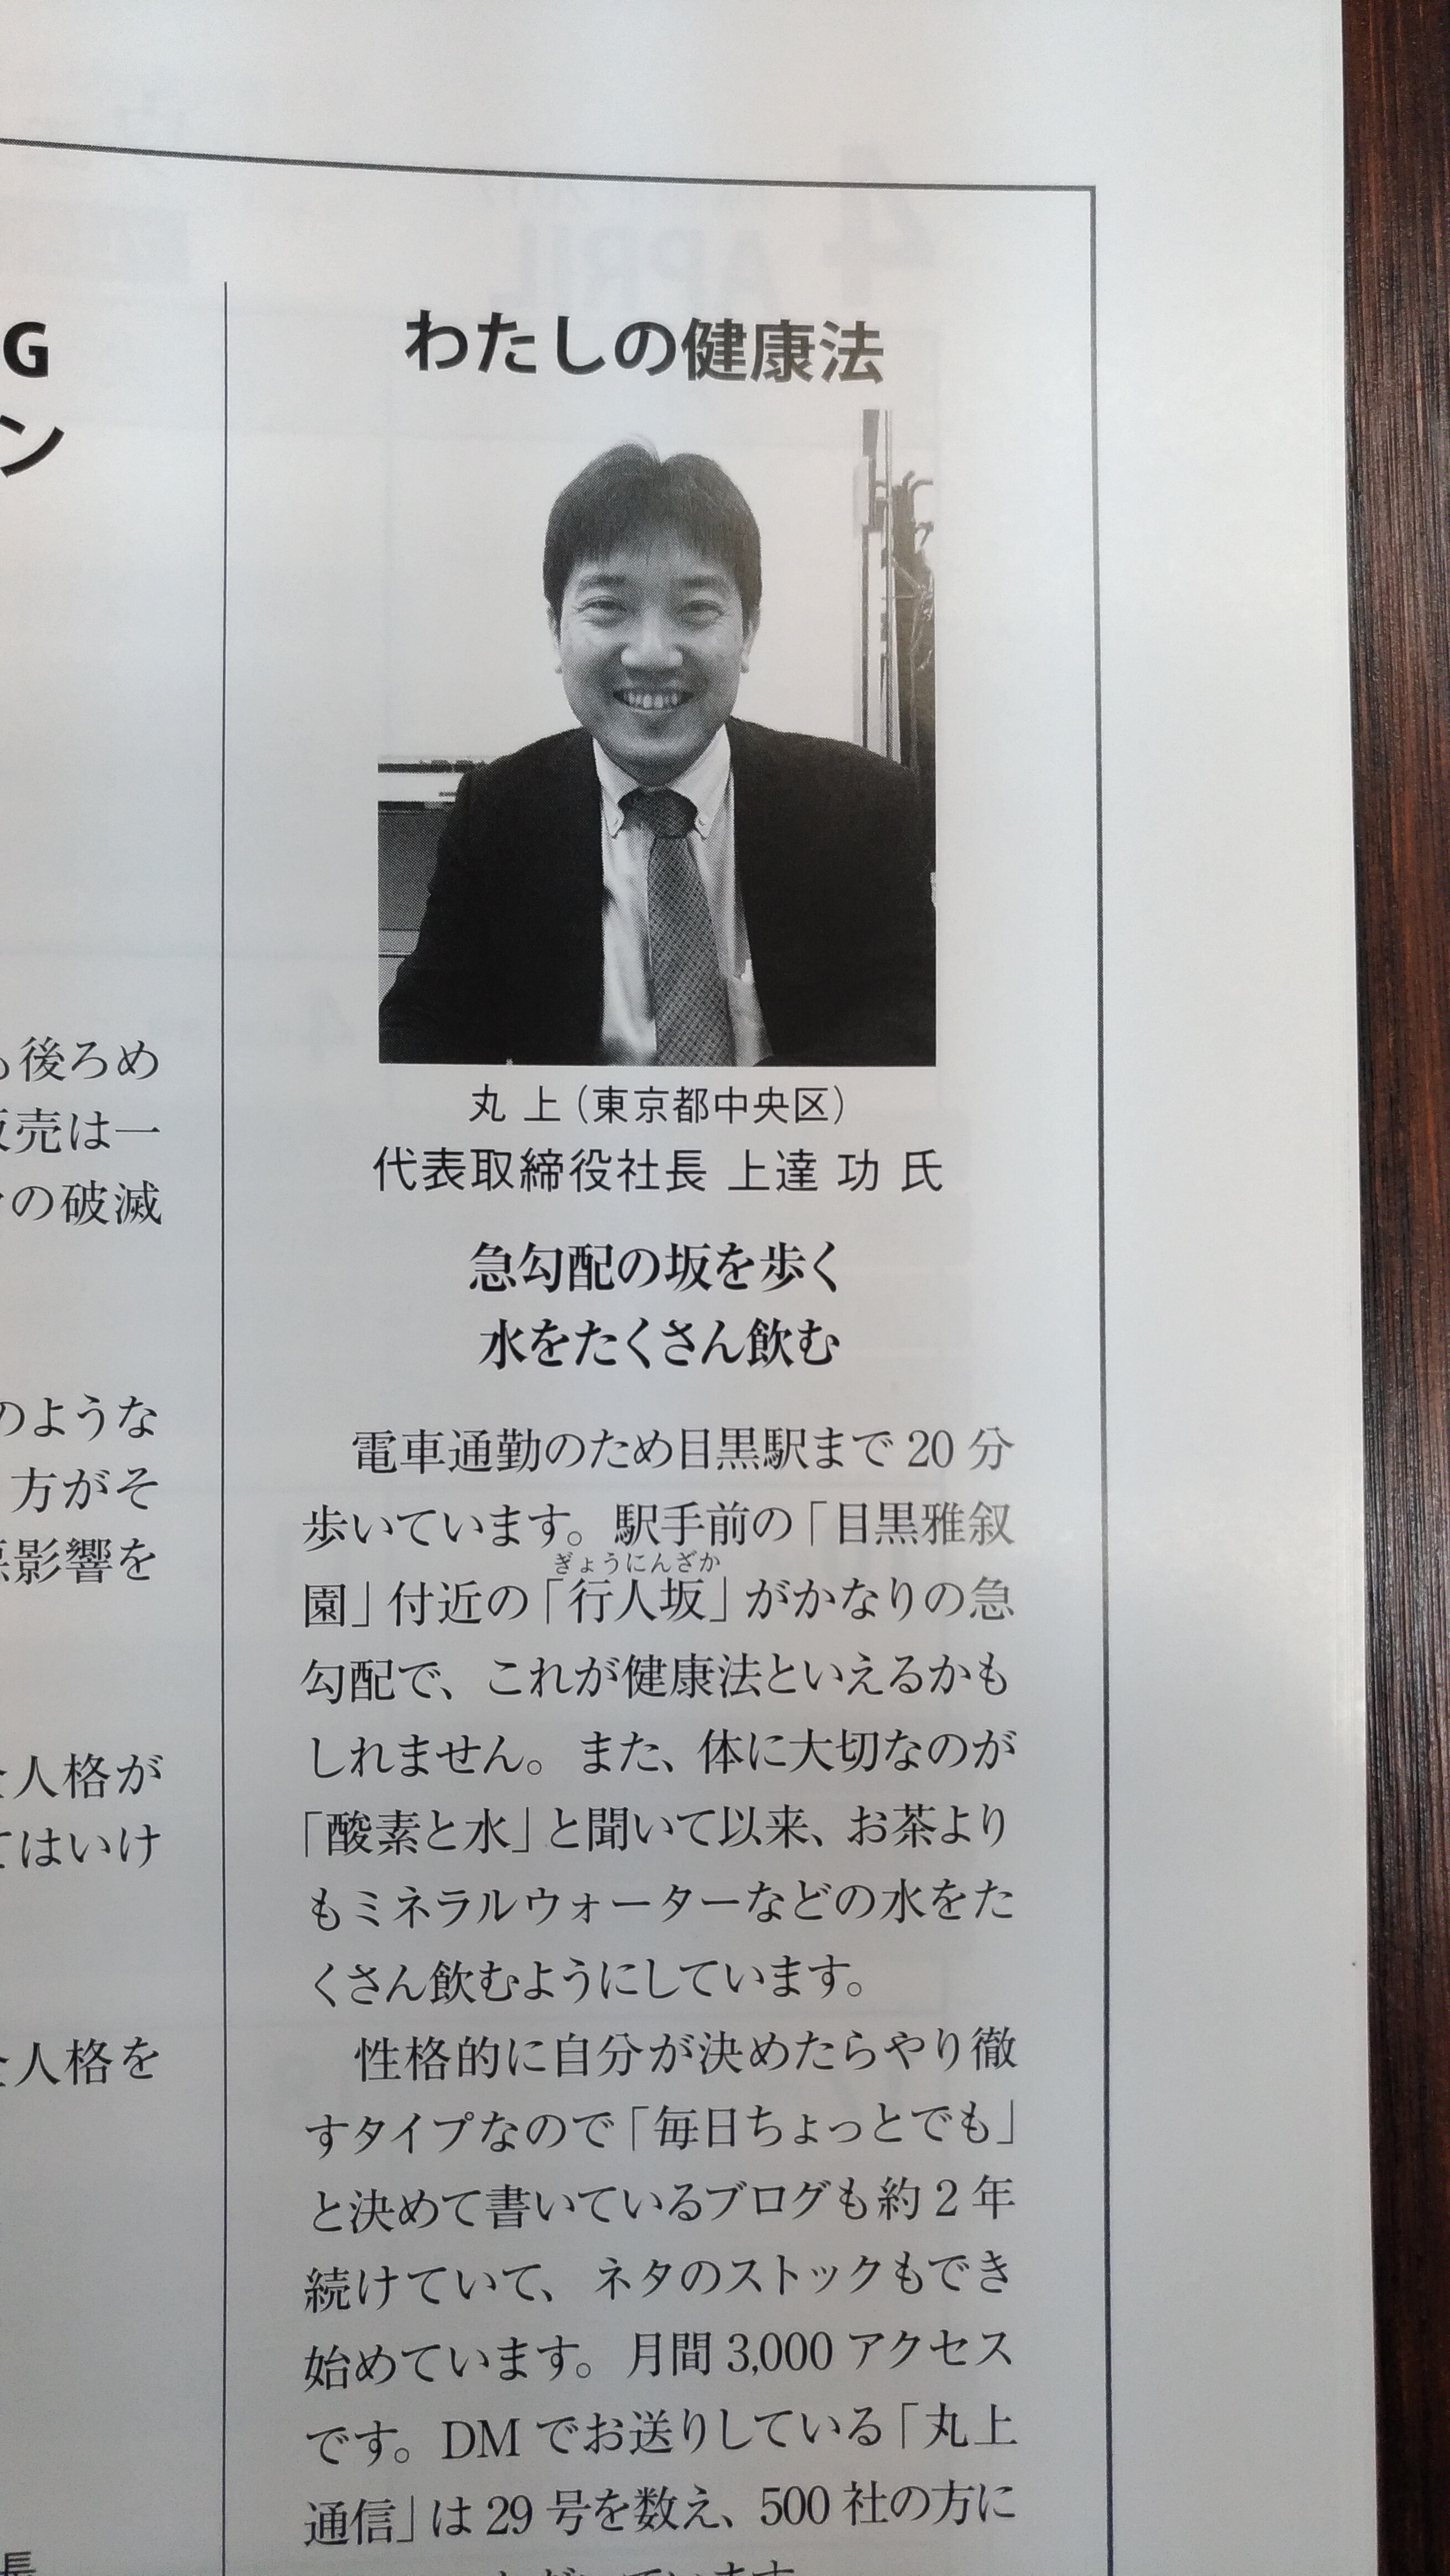 G
ン
後ろめ
売は一
の破滅
のような
方がそ
影響を
人格が
てはいけ
人格を
長
わたしの健康法
丸 上（東京都中央区）
代表取締役社長 上達 功 氏
急勾配の坂を歩く
水をたくさん飲む
電車通勤のため目黒駅まで 20 分
歩いています。駅手前の「目黒雅叙
ぎょうにんざか
園」付近の「行人坂」がかなりの急
勾配で、これが健康法といえるかも
しれません。また、体に大切なのが
「酸素と水」と聞いて以来、お茶より
もミネラルウォーターなどの水をた
くさん飲むようにしています。
性格的に自分が決めたらやり徹
すタイプなので「毎日ちょっとでも」
と決めて書いているブログも約 2 年
続けていて、ネタのストックもでき
始めています。月間 3,000 アクセス
です。DM でお送りしている「丸上
通信」は 29 号を数え、500 社の方に